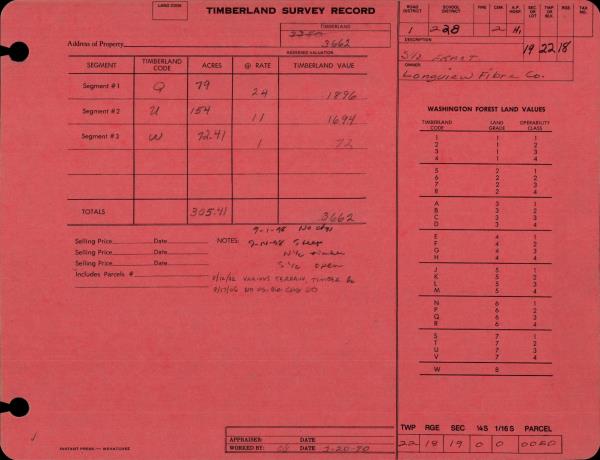 LAND CODE
TIMBERLAND SURVEY RECORD
TIMBERLAND
Address of Property
3662
ASSESSED VALUATION
SEGMENT TIMBERLAND CODE ACRES @ RATE TIMBERLAND VAUE
Segment #1 Q 79 24 1896
Segment #2 U 154 11 1694
Segment #3 W 72.41 1 72
TOTALS 305.41 3662
Selling Price Date NOTES: 9-1-98 No chgs
Selling Price Date Steep
Selling Price Date N½ timber
Selling Price Date S½ open
Includes Parcels #
VARIOUS TERRAIN, TIMBER
APPRAISER: DATE
WORKED BY: DATE 1-20-70
INSTANT PRESS — WENATCHEE
ROAD DISTRICT SCHOOL DISTRICT FIRE CEM. A.P. HOSP. SEC OR LOT TWP OR BLK. RGE TAX NO.
1 228 2 H1 19 22 18
DESCRIPTION
OWNER
Longview Fibre Co.
WASHINGTON FOREST LAND VALUES
TIMBERLAND CODE LAND GRADE OPERABILITY CLASS
1 1 1
2 1 2
3 1 3
4 1 4
5 2 1
6 2 2
7 2 3
8 2 4
A 3 1
B 3 2
C 3 3
D 3 4
E 4 1
F 4 2
G 4 3
H 4 4
J 5 1
K 5 2
L 5 3
M 5 4
N 6 1
P 6 2
Q 6 3
R 6 4
S 7 1
T 7 2
U 7 3
V 7 4
W 8
TWP RGE SEC ¼S 1/16 S PARCEL
22 18 19 0 0 0050